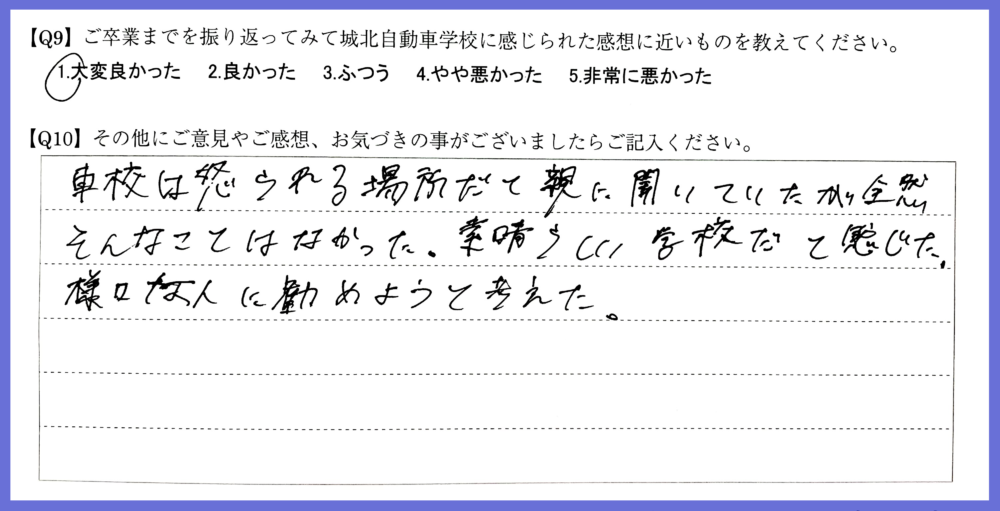 【Q9】ご卒業までを振り返ってみて城北自動車学校に感じられた感想に近いものを教えてください。
1.大変良かった 2.良かった 3.ふつう 4.やや悪かった 5.非常に悪かった
【Q10】その他にご意見やご感想、お気づきの事がございましたらご記入ください。
車校は怒られる場所だて親に聞いていたが全然
そんなことはなかった。素晴らしい学校だと感じた。
様々な人に勧めようと考えた。